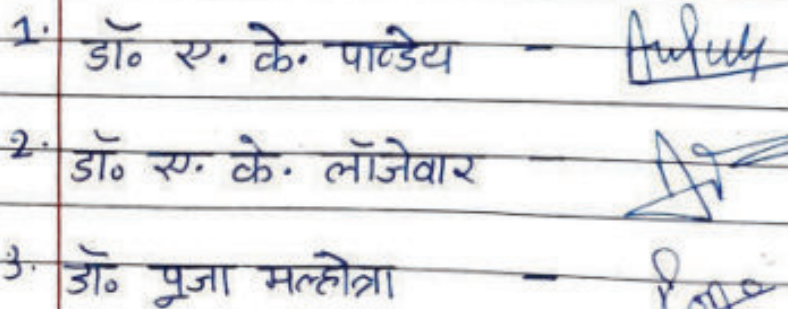 1. डॉ० ए. के. पाण्डेय -
2. डॉ० ए. के. लॉजेवार -
3. डॉ० पूजा मल्होत्रा -